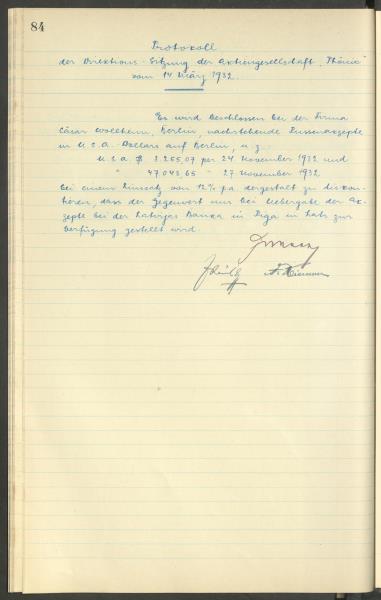 84
Protokoll
der Direktions-Sitzung der Aktiengesellschaft "Phönix"
vom 14 März 1932.
Es wird beschlossen bei der Firma
Cäsar Wollheim, Berlin, nachstehende Russenakzepte
in U.S.A. Dollars auf Berlin, u. z.
U.S.A. $ 3.255,07 per 24 November 1932 und
" 47.043,65 " 27 November 1932
bei einem Zinssatz von 12% p.a. dergestalt zu diskon-
tieren, dass der Gegenwert uns bei Uebergabe der Ak-
zepte bei der Latvijas Banka in Riga in Lats zur
Verfügung gestellt wird.